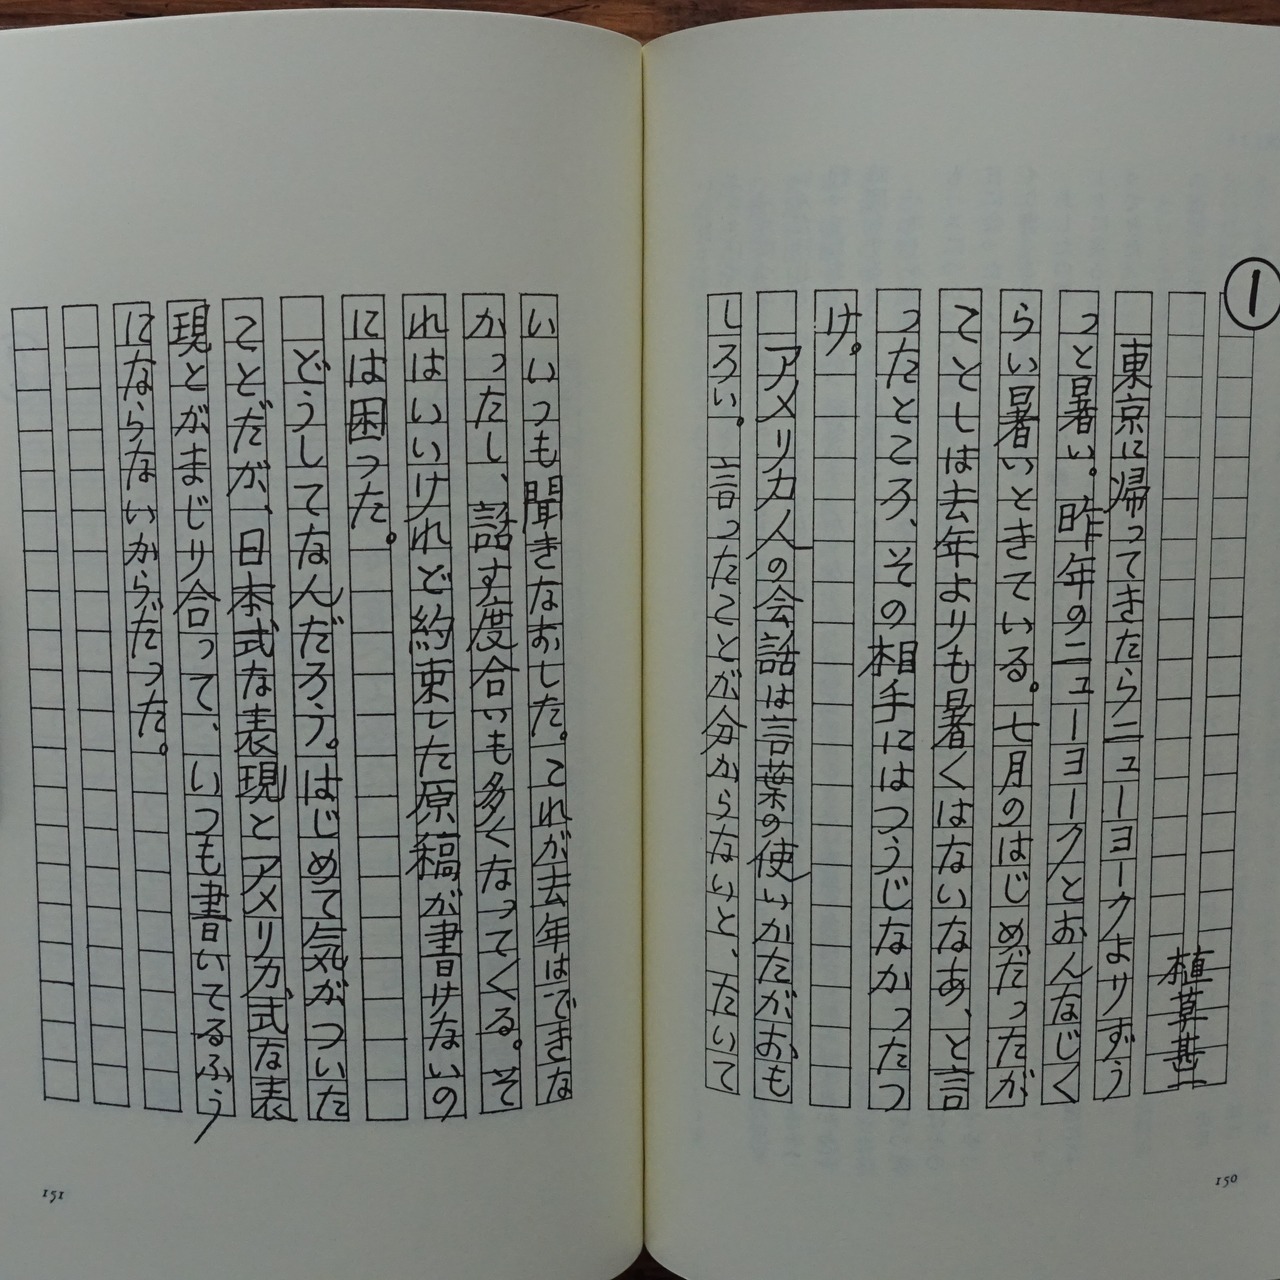 ①
植草甚一
東京に帰ってきたらニューヨークよりずう
っと暑い。昨年のニューヨークとおんなじく
らい暑いときている。七月のはじめだったが
ことしは去年よりも暑くはないなあ、と言
ったところ、その相手にはつうじなかったっ
け。
アメリカ人の会話は言葉の使いかたがおも
しろい。言ったことが分からないと、たいて
いいつも聞きなおした。これが去年はできな
かったし、話す度合いも多くなってくる。そ
れはいいけれど約束した原稿が書けないの
には困った。
どうしてなんだろう。はじめて気がついた
ことだが、日本式な表現とアメリカ式な表
現とがまじり合って、いつも書いてるふう
にならないからだった。
150
151